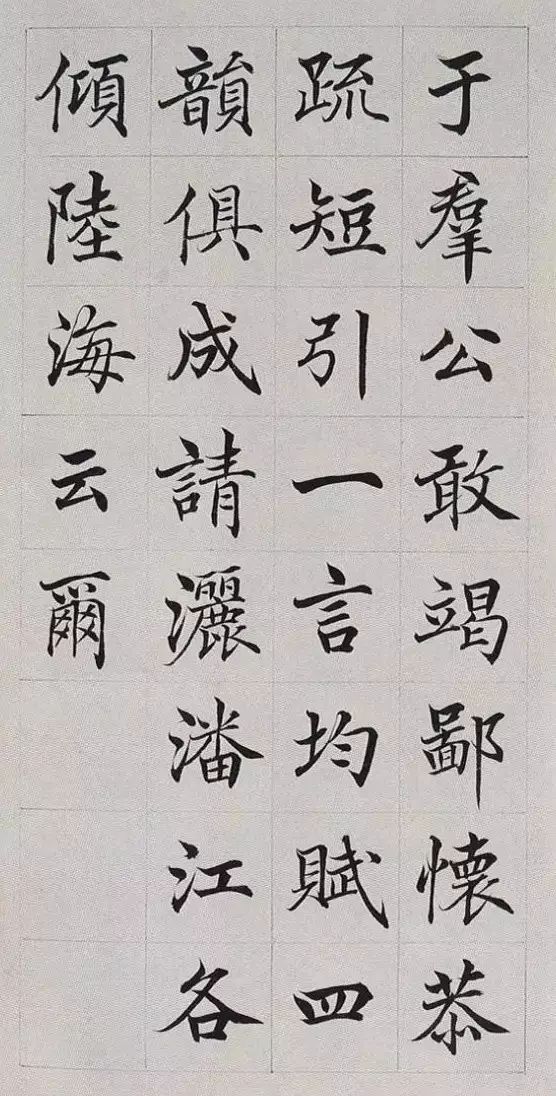 于羣公敢竭鄙懷恭
疏短引一言均賦四
韻俱成請灑潘江各
傾陸海云爾